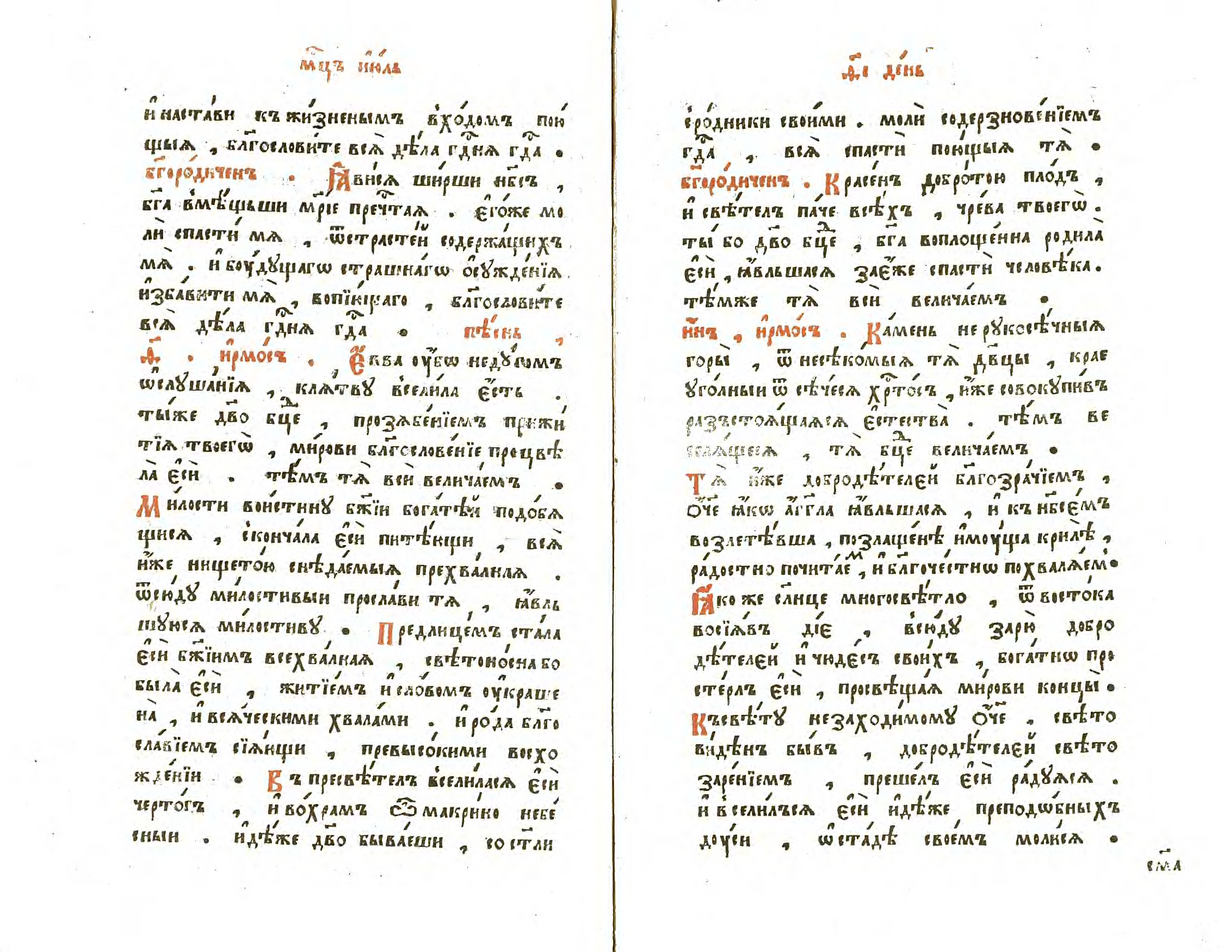 мⷭ҇цъ і҆ю́ль
и҆ наста́ви къ жи́зненымъ вхо́домъ пою
щыѧ , бл҃гослови́те всѧ̀ дѣ́ла гдⷭ҇нѧ гдⷭ҇а .
бг҃оро́диченъ . Ꙗ҆ви́сѧ ши́рши нб҃съ ,
бг҃а вмѣ́щьши мр҃і́е пречтⷭ҇аѧ . є҆го́же мо
лѝ спастѝ мѧ , ѿстрасте́й содержа́щихъ
мѧ . и҆ бꙋ́дꙋщагѡ стра́шнагѡ ѡ҆сꙋжде́нїѧ
и҆зба́вити мѧ̀ , вопїю́щаго , бл҃гослови́те
всѧ̀ дѣ́ла гдⷭ҇нѧ гдⷭ҇а . пѣ́снь ,
ѳ҃ . і҆рмо́съ . Є҆́ѵва ᲂу҆́бѡ недꙋ́гомъ
ѡ҆слꙋша́нїѧ , клѧ́твꙋ всели́ла є҆́сть .
ты́же дв҃о бцⷣе , прозѧбе́нїемъ прижи
тїѧ̀ твоегѡ̀ , ми́рови бл҃гослове́нїе процвѣ
ла̀ є҆сѝ . тѣ́мъ тѧ̀ всѝ велича́емъ .
Ми́лости вои́стинꙋ бж҃їи бога́тѣй подо́бѧ
щисѧ , скончала є҆сѝ пита́ющи , всѧ̀
и҆́же нището́ю снѣда́емыѧ прехва́лнаѧ .
ѿсю́дꙋ ми́лостивыи просла́ви тѧ , ꙗ҆́вль
шꙋюсѧ ми́лостивꙋ . Предлице́мъ ста́ла
є҆сѝ бж҃їимъ всехва́лнаѧ , свѣтоно́сна бо
была̀ є҆сѝ , житїе́мъ и҆ сло́вомъ ᲂу҆кра́ше
на̀ , и҆ всѧ́ческими хвала́ми . и҆ ро́да бл҃го
сла́вїемъ сїѧ́ющи , превысо́кими восхо
жде́нїи . Въ пресвѣ́телъ всели́ласѧ є҆сѝ
черто́гъ , и҆ во́храмъ ѽ макри́но небе́
сныи . и҆дѣ́же дв҃о быва́еши , со ст҃ли
ѳ҃і де́нь
сро́дники свои́ми . молѝ содерзнове́нїемъ
гдⷭ҇а , всѧ̀ спастѝ пою́щыѧ тѧ̀ .
бг҃оро́диченъ . Красе́нъ добро́тою пло́дъ ,
и҆ свѣ́телъ па́че всѣ́хъ , чре́ва твоегѡ̀ .
ты́ бо дв҃о бцⷣе , бг҃а воплоще́нна родила̀
є҆сѝ , ꙗ҆́вльшасѧ за є҆́же спастѝ человѣ́ка .
тѣ́мже тѧ̀ всѝ велича́емъ .
и҆́нъ , і҆рмо́съ . Ка́мень нерꙋкосѣ́чныѧ
горы̀ , ѿ несѣко́мыѧ тѧ̀ дв҃цы , крае
ᲂуго́лныи ѿсѣче́сѧ хрⷭ҇то́съ , и҆́же совокꙋпи́въ
разъстоѧ́щаѧсѧ є҆стества̀ . тѣ́мъ ве
селѧ́щесѧ , тѧ̀ бцⷣе велича́емъ .
Тѧ̀ и҆́же доброде́телей бл҃гозра́чїемъ ,
ѻ҆́ч҃е ꙗ҆́кѡ а҆́гг҃ла ꙗ҆́вльшасѧ , и҆ къ нбⷭ҇е́мъ
возлетѣ́вша , позлаще́нѣ и҆мꙋ́ща крилѣ̀ ,
ра́достно почита́емъ , и҆ бл҃гоче́стнѡ похвалѧ́емъ .
Ꙗ҆́ко же сл҃нце многосвѣ́тло , ѿ восто́ка
восїѧ́въ дї́е , всю́дꙋ зарю̀ добро
дѣ́телей и҆ чюде́съ свои́хъ , бога́тнѡ про
сте́рлъ є҆сѝ , просвѣща́ѧ ми́рови концы̀ .
Къ свѣ́тꙋ незаходи́момꙋ ѻ҆́ч҃е . свѣто
ви́дѣнъ бы́въ , доброде́телей свѣто
заре́нїемъ , преше́лъ є҆сѝ ра́дꙋѧсѧ .
и҆ всели́лъсѧ є҆сѝ и҆дѣ́же преподѡ́бныхъ
дꙋ́си , ѡ҆ ста́дѣ свое́мъ моли́сѧ .
см҃а